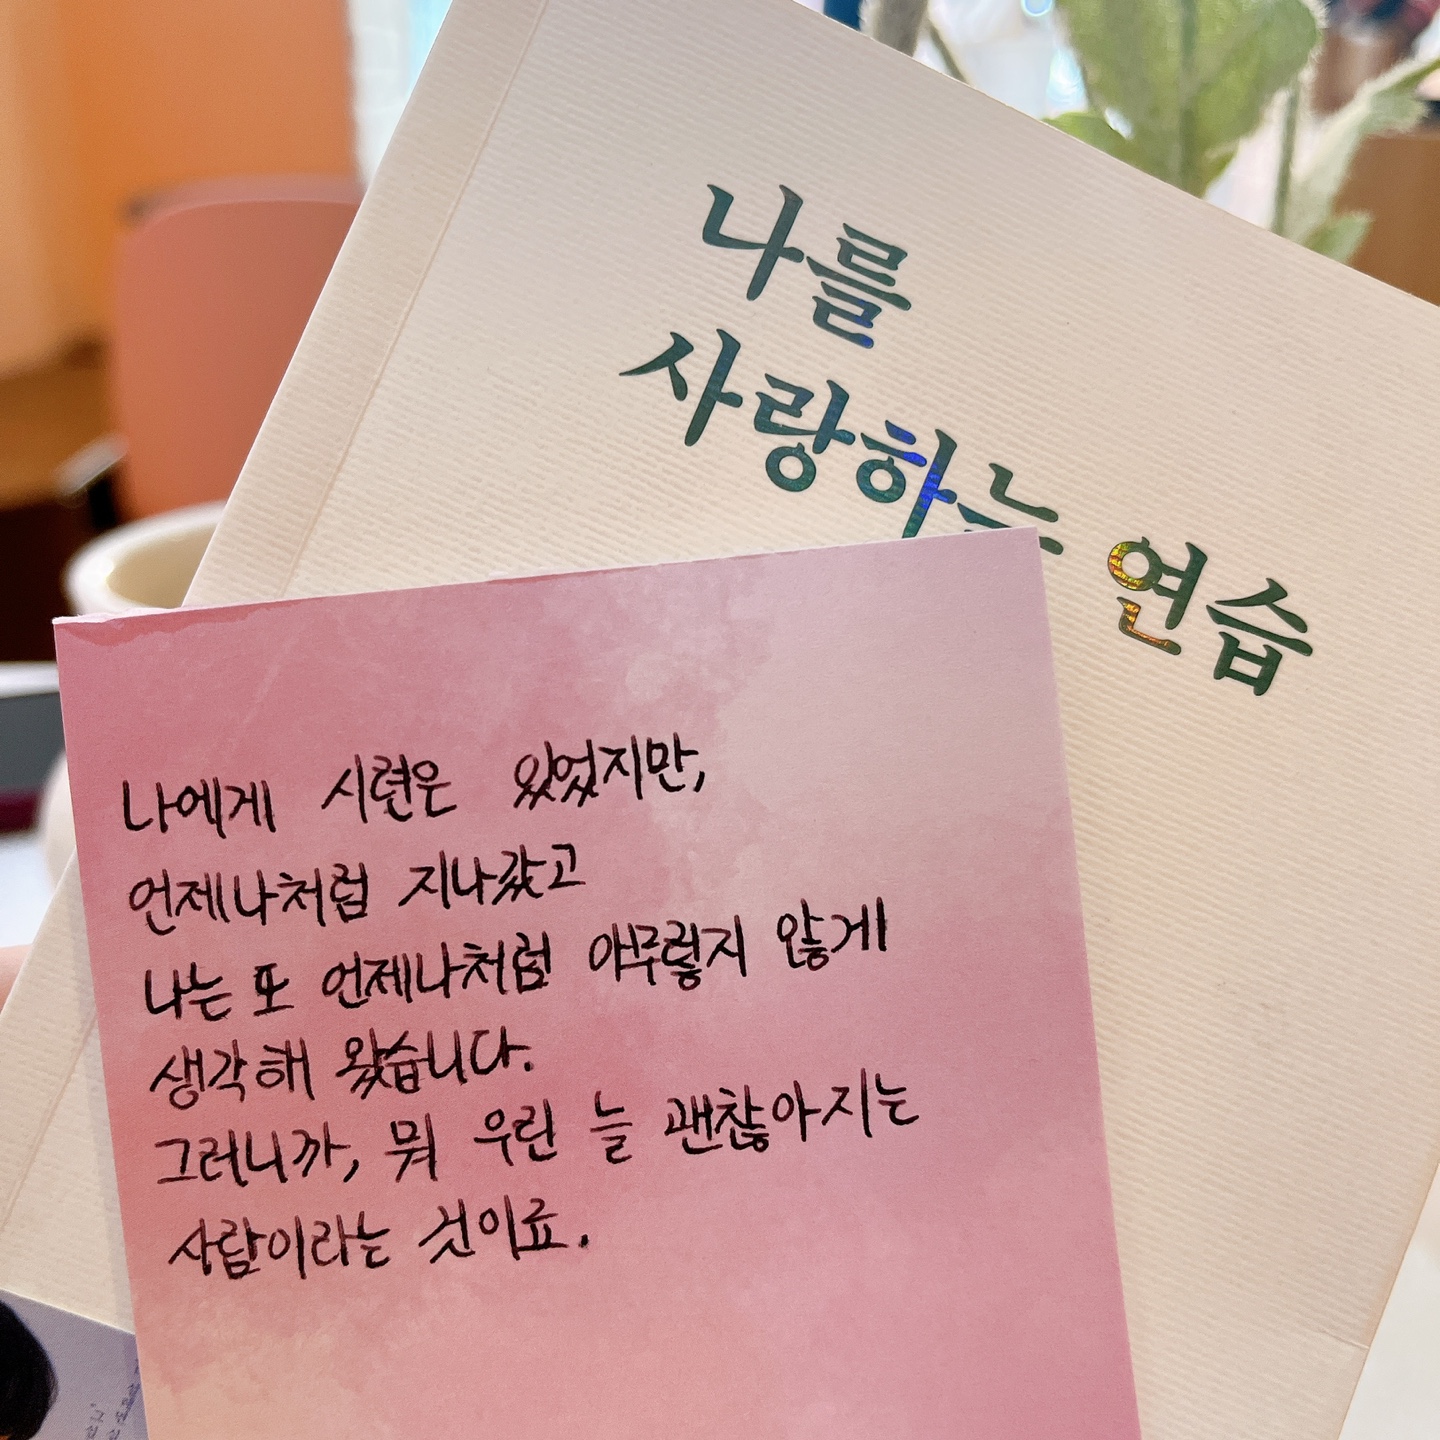 나를
사랑하는 연습
나에게 시련은 있었지만,
언제나처럼 지나갔고
나는 또 언제나처럼 아무렇지 않게
생각해 왔습니다.
그러니까, 뭐 우린 늘 괜찮아지는
사람이라는 것이죠.